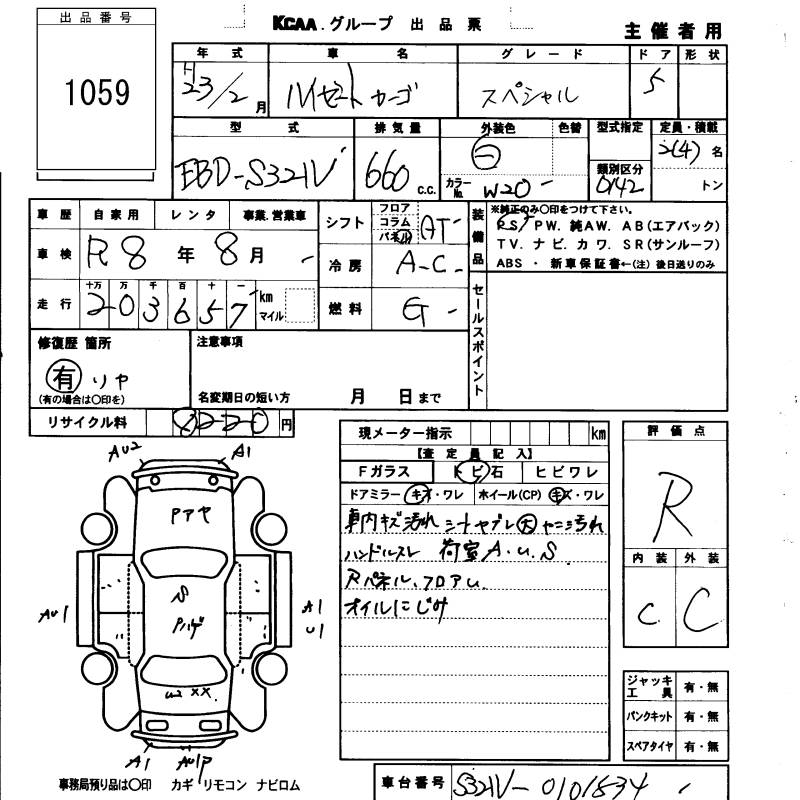 出品番号
1059
KCAA グループ 出品票
主催者用
年式 車名 グレード ドア 形状
H23/2月 ハイゼットカーゴ スペシャル 5
型式 排気量 外装色 色替 型式指定 定員・積載
EBD-S321V 660 C.C. カラーNo. W20 類別区分 0142 2(4)名 トン
車歴 自家用 レンタ 事業.営業車
車検 R8年8月
走行 十万 万 千 百 十 一
203657 km マイル
シフト フロア コラム パネル AT
冷房 A-C
燃料 G
装備品
※純正のみ〇印をつけて下さい。
PS. PW. 純AW. AB(エアバック)
TV. ナビ. カワ. SR(サンルーフ)
ABS ・ 新車保証書←(注) 後日送りのみ
セールスポイント
修復歴 箇所
有 リヤ
(有の場合は〇印を)
注意事項
名変期日の短い方 月 日まで
リサイクル料 円
現メーター指示 km
【査定員記入】
Fガラス トビ石 ヒビワレ
ドアミラー キズ・ワレ ホイール(CP) キズ・ワレ
車内キズ汚れ シートヤブレ大 ヤニ汚れ
ハンドルスレ 荷室A.U.S
Rパネル、フロアU
オイルにじみ
評価点
R
内装 外装
C C
ジャッキ工具 有・無
パンクキット 有・無
スペアタイヤ 有・無
AU2 A1
S
Pハゲ
AU1 A1
U1
A1 AU1P
事務局預り品は〇印 カギ リモコン ナビロム
車台番号 S321V-0101834